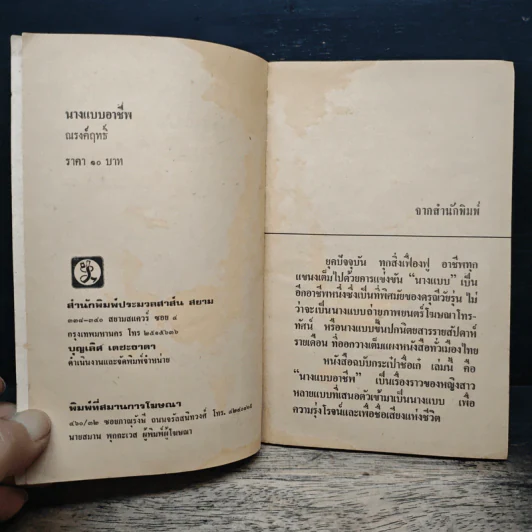 นางแบบอาชีพ
ณรงค์ฤทธิ์
ราคา ๑๐ บาท
สำนักพิมพ์ประมวลสาส์น สยาม
๓๓๘-๓๔๐ สยามสแควร์ ซอย ๔
กรุงเทพมหานคร โทร ๒๕๑๕๖๓๖
บุญเลิศ เตชะธาดา
ดำเนินงานและจัดพิมพ์จำหน่าย
พิมพ์ที่สมานการโฆษณา
๔๖๐/๓๒ ซอยภาณุรังษี ถนนจรัลสนิทวงศ์ โทร.
นายสมาน พุกกะเวส ผู้พิมพ์ผู้โฆษณา
จากสำนักพิมพ์
ยุคปัจจุบัน ทุกสิ่งเฟื่องฟู อาชีพทุก
แขนงเต็มไปด้วยการแข่งขัน “นางแบบ” เป็น
อีกอาชีพหนึ่งซึ่งเป็นที่พิศมัยของดรุณีวัยรุ่น ไม่
ว่าจะเป็นนางแบบถ่ายภาพยนตร์โฆษณาโทร-
ทัศน์ หรือนางแบบขึ้นปกนิตยสารรายสัปดาห์
รายเดือน ที่ออกวางเต็มแผงหนังสือทั่วเมืองไทย
หนังสือฉบับกระเป๋าชื่อเก๋ เล่มนี้ คือ
“นางแบบอาชีพ” เป็นเรื่องราวของหญิงสาว
หลายแบบที่เสนอตัวเข้ามาเป็นนางแบบ เพื่อ
ความรุ่งโรจน์และเพื่อชื่อเสียงแห่งชีวิต